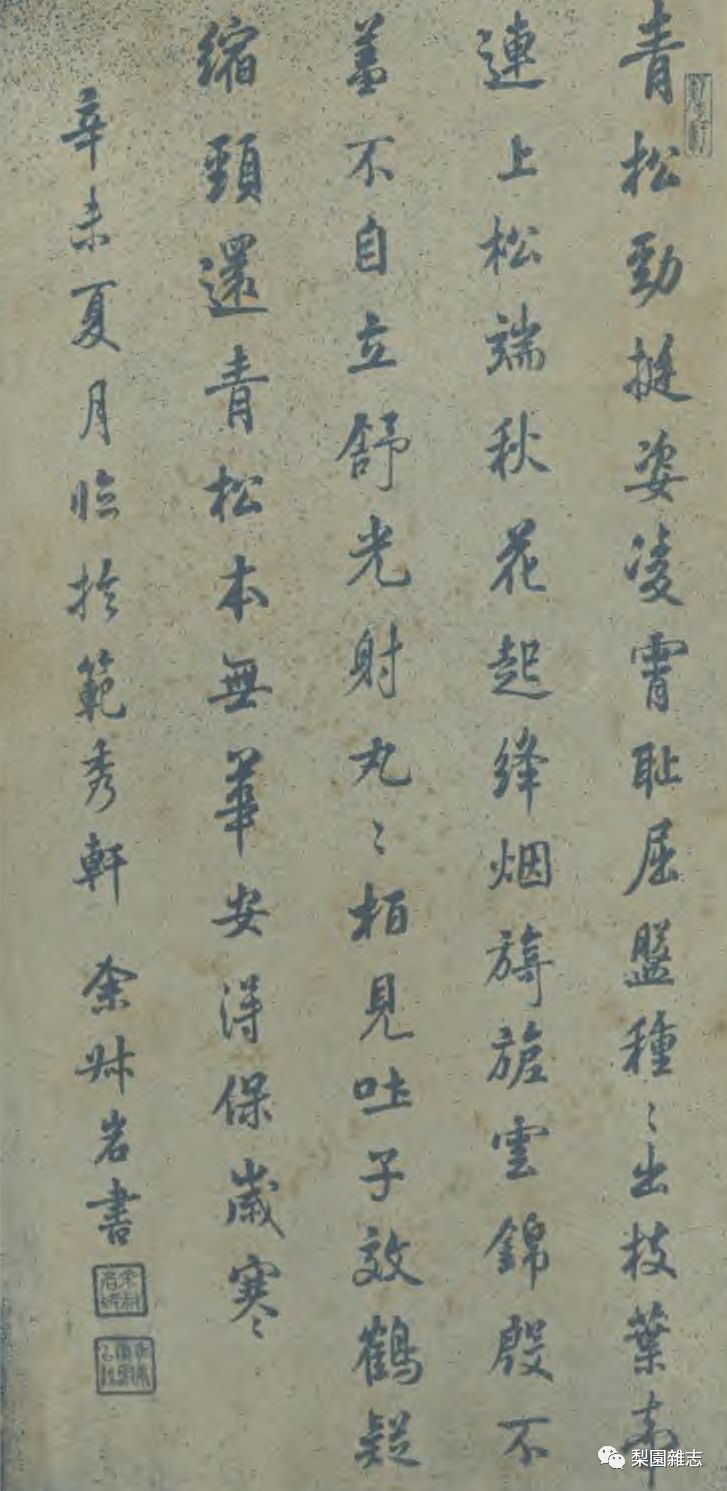 青松勁挺姿凌霄恥屈盤種〻出枝葉牽
連上松端秋花起絳烟旖旎雲錦殷不
羞不自立舒光射丸〻柏見吐子效鶴疑
縮頸還青松本無華安得保歲寒〻
辛未夏月臨於範秀軒 余叔岩書
梨園雜志